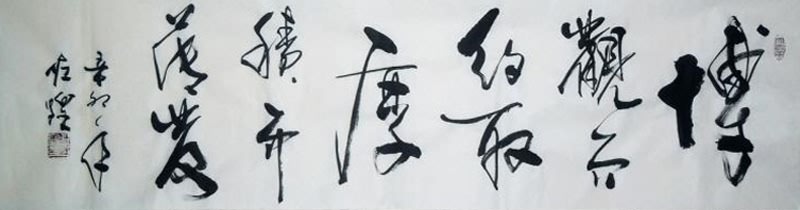 博
觀而
約取
厚
積而
薄發
辛卯